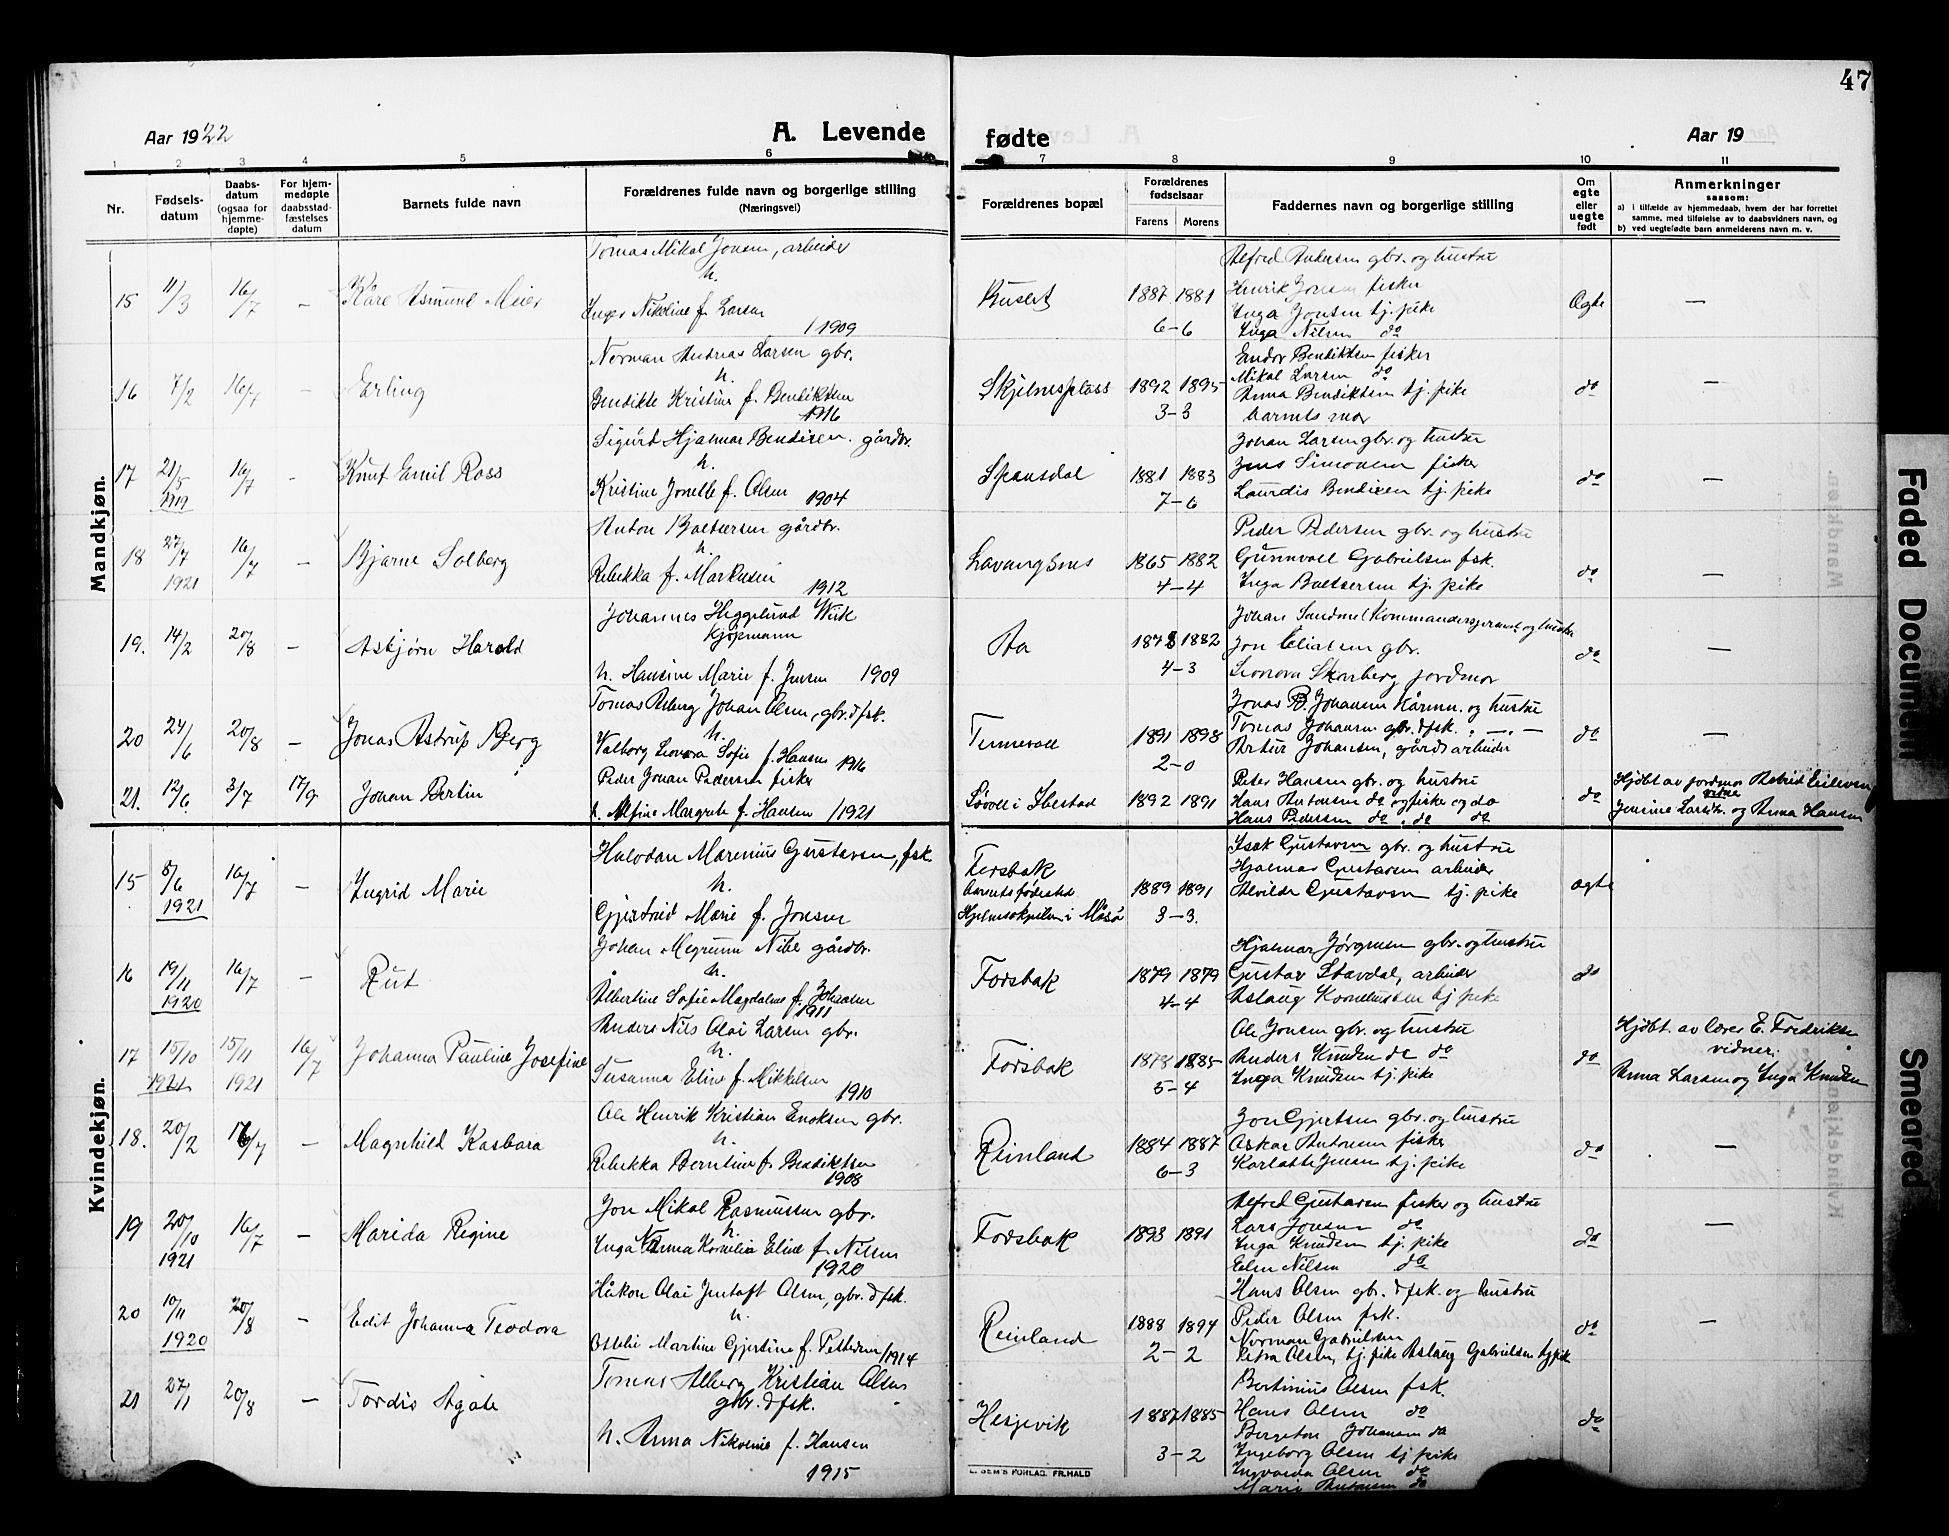 47
Aar 1922
A. Levende
fødte
Aar 19
1 2 3 4 5 6 7 8 9 10 11
Nr.
Fødsels-
datum
Daabs-
datum
(ogsaa for
hjemme-
døpte)
For hjem-
medøpte
daabsstad-
fæstelses
datum
Barnets fulde navn
Forældrenes fulde navn og borgerlige stilling
(Næringsvei)
Forældrenes bopæl
Forældrenes
fødselsaar
Farens Morens
Faddernes navn og borgerlige stilling
Om
egte
eller
uegte
født
Anmerkninger
saasom:
a) i tilfælde av hjemmedaab, hvem der har forrettet
samme, med tilføielse av to daabsvidners navn, og
b) ved uegtefødte barn anmelderens navn m. v.
Mandkjøn.
15 11/3 16/7 — Kåre Asmund Meier
Tomas Mikal Jonsen, arbeider
h.
Inger Nikoline f. Larsen
1909
Kuset
1887 1881
6-6
Alfred Andersen gbr. og hustru
Henrik Jonsen fisker
Inga Jonsen tj. pike
Inga Nilsen do
Egte —
16 7/2 16/7 — Erling
Norman Andreas Larsen gbr.
h.
Bendikte Kristine f. Bendiktsen
1916
Skjelnesplass
1892 1895
3-3
Endor Bendiktsen fisker
Mikal Larsen do
Anna Bendiktsen tj. pike
barnets mor
do —
17 21/5 1919 16/7 - Knut Emil Ross
Sigurd Hjalmar Bendixen gårdbr.
h.
Kristine Jonette f. Olsen 1904
Spansdal
1881 1883
7-6
Johan Larsen gbr. og hustru
Jens Simonsen fisker
Laurdis Bendixen tj. pike
do —
18 27/7 1921 16/7 — Bjarne Solberg
Anton Baltsersen gårdbr.
h.
Rebekka f. Markusen
1912
Lavangsnes
1865 1882
4-4
Peder Pedersen gbr. og hustru
Gunnvall Gabrielsen fsk.
Inga Baltsersen tj. pike
do —
19. 14/2 20/8 — Asbjørn Harald
Johannes Heggelund Wiik
Kjøpmann
h. Hansine Marie f. Jensen 1909
Aa
1878 1882
4-3
Johan Sandmo og hustru
Jon Eliassen gbr.
Leonora Skovberg jordmor
do —
20 24/6 20/8 — Jonas Astrup Berg
Tomas Åsberg Johan Olsen, gbr. & fsk.
h.
Valborg Leonora Sofie f. Hansen 1916
Tennevoll
1891 1898
2-0
Jonas B. Johansen og hustru
Tomas Johansen gbr. & fsk. — " —
Artur Johansen, gårdsarbeider
do —
21. 12/6 3/7 17/9 Johan Bertin
Peder Johan Pedersen fisker
h. Alfine Margrete f. Hansen 1921
Løvoll i Ibestad
1892 1891
Peter Hansen gbr. og hustru
Hans Antonsen do og fisker og do
Hans Pedersen do . do do
do
Hjdbt av jordmor Astrid Eilevsen
vidne
Jensine Larsen og Anna Hansen
Kvindekjøn.
15 8/6 1921 16/7 — Ingrid Marie
Halvdan Marenius Gustavsen, fsk.
h.
Gjertrud Marie f. Jonsen
Forsbak
barnets fødested
Hjelmsøkjelen i Måsø
1889 1891
3-3.
Isak Gustavsen gbr. og hustru
Hjalmar Gustavsen arbeider
Alvilde Gustavsen tj. pike
egte
16 19/11 1920 16/7 — Rut
Johan Megrunn Nibe gårdbr.
h.
Albertine Sofie Magdalene f. Johansen
1911
Forsbak
1879 1879
4-4
Hjalmar Jørgensen gbr. og hustru
Gustav Stavdal, arbeider
Aslaug Korneliussen tj pike
do
17 15/10 1921 15/11 1921 16/7 Johanna Pauline Josefine
Anders Nils Olai Larsen gbr.
h.
Susanna Eline f. Mikkelsen
1910
Forsbak
1878 1885
5-4
Ole Jonsen gbr. og hustru
Anders Knudsen do do
Inga Knudsen tj. pike
do
Hjdbt. av lærer E. Fredriksen
vidner:
Anna Larsen og Inga Knudsen
18. 20/2 16/7 — Magnhild Kasbara
Ole Henrik Kristian Enoksen gbr.
h.
Rebekka Berntine f. Bendiktsen
1908
Reinland
1884 1887
6-3
Jon Gjertsen gbr. og hustru
Oskar Antonsen fisker
Karlotte Jensen tj. pike
do —
19 20/10 1921 16/7 — Marida Regine
Jon Mikal Rasmussen gbr.
h.
Inga Anna Kornelia Eline f. Nilsen
1920
Forsbak
1893 1891
Alfred Gustavsen fisker og hustru
Lars Jonsen do
Inga Knudsen tj. pike
Elen Nilsen do
do —
20 10/11 1920 20/8 — Edit Johanna Teodora
Håkon Olai Jentoft Olsen, gbr. & fsk.
h.
Ottelie Martine Gjertine f. Pettersen 1914
Reinland
1888 1894
2-2
Hans Olsen gbr. & fsk. og hustru
Peder Olsen fsk.
Norman Gabrielsen
Petra Olsen, tj. pike Aslaug Gabrielsen tj pike
do —
21 27/1 20/8 — Tordis Agate
Tomas Alberg Kristian Olsen
gbr. & fsk.
h. Anna Nikoline f. Hansen
1915
Hesjevik
1887 1885
3-2
Bertinius Olsen fsk.
Hans Olsen do
Bergeton Johansen do
Ingeborg Olsen tj pike
Ingvarda Olsen do
Marie Antonsen do
do
SEM'S FORLAG. FR.HALD
Faded Document
Smeared